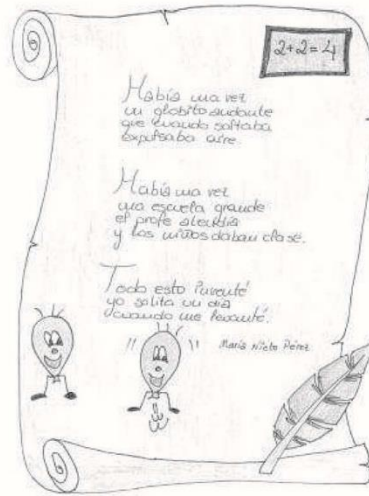 2+2=4
Había una vez
un globito andante
que cuando saltaba
expulsaba aire.
Había una vez
una escuela grande
el profe atendía
y los niños daban clase.
Todo esto inventé
yo solita un día
cuando me levanté.
María Nieto Pérez